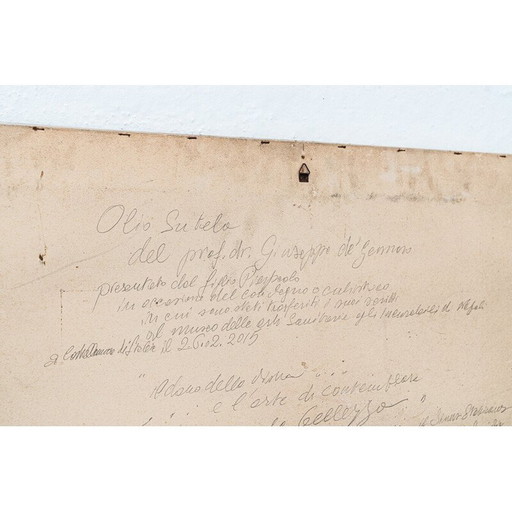 Olio Su tela
del prof. dr. Giuseppe de Gennaro
presentato dal figlio Pierpaolo
in occasione del convegno oculistico
in cui sono stati trasferiti i suoi scritti
al museo delle arti Sanitarie gli Incurabili di Napoli
a Castellammare di Stabia il 26.02.2015
"Il dono della vista"
e l'arte di contemplare
la bellezza"